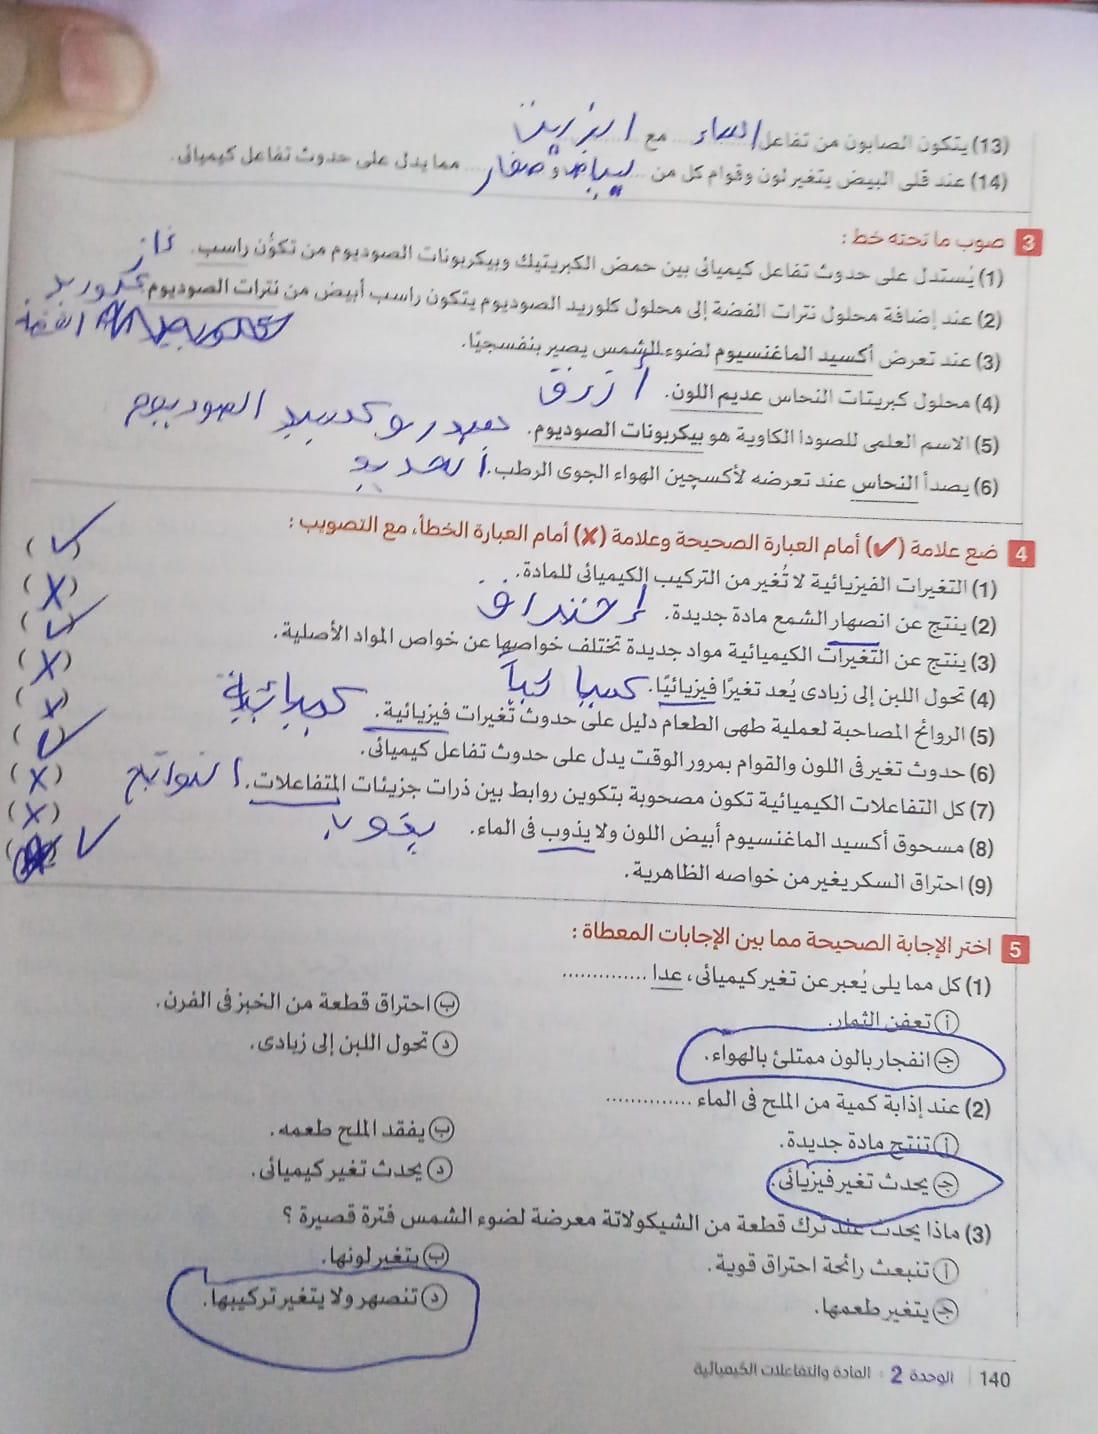 (13) يتكون الصابون من تفاعل الماء مع الزيت
(14) عند قلى البيض يتغير لون وقوام كل من بياض و صفار مما يدل على حدوث تفاعل كيميائى.
3 صوب ما تحته خط :
(1) يُستدل على حدوث تفاعل كيميائى بين حمض الكبريتيك وبيكربونات الصوديوم من تكوُّن راسب. غاز
(2) عند إضافة محلول نترات الفضة إلى محلول كلوريد الصوديوم يتكون راسب أبيض من نترات الصوديوم. كلوريد
الفضة
(3) عند تعرض أكسيد الماغنسيوم لضوء الشمس يصير بنفسجيًا.
(4) محلول كبريتات النحاس عديم اللون. أزرق
(5) الاسم العلمى للصودا الكاوية هو بيكربونات الصوديوم. هيدروكسيد الصوديوم
(6) يصدأ النحاس عند تعرضه لأكسچين الهواء الجوى الرطب. الحديد
4 ضع علامة (✓) أمام العبارة الصحيحة وعلامة (✗) أمام العبارة الخطأ، مع التصويب :
(1) التغيرات الفيزيائية لا تُغير من التركيب الكيميائى للمادة. (✓)
(2) ينتج عن انصهار الشمع مادة جديدة. إحتراق (✗)
(3) ينتج عن التغيرات الكيميائية مواد جديدة تختلف خواصها عن خواص المواد الأصلية. (✓)
(4) تحول اللبن إلى زبادى يُعد تغيرًا فيزيائيًا. كيميائياً (✗)
(5) الروائح المصاحبة لعملية طهى الطعام دليل على حدوث تغيرات فيزيائية. كيميائية (✗)
(6) حدوث تغير فى اللون والقوام بمرور الوقت يدل على حدوث تفاعل كيميائى. (✓)
(7) كل التفاعلات الكيميائية تكون مصحوبة بتكوين روابط بين ذرات جزيئات المتفاعلات. النواتج (✗)
(8) مسحوق أكسيد الماغنسيوم أبيض اللون ولا يذوب فى الماء. يذوب (✗)
(9) احتراق السكر يغير من خواصه الظاهرية. ✓
5 اختر الإجابة الصحيحة مما بين الإجابات المعطاة :
(1) كل مما يلى يُعبر عن تغير كيميائى، عدا ..............
أ تعفن الثمار. ب احتراق قطعة من الخبز فى الفرن.
ج انفجار بالون ممتلئ بالهواء. د تحول اللبن إلى زبادى.
(2) عند إذابة كمية من الملح فى الماء ..............
أ تنتج مادة جديدة. ب يفقد الملح طعمه.
ج يحدث تغير فيزيائى. د يحدث تغير كيميائى.
(3) ماذا يحدث عند ترك قطعة من الشيكولاتة معرضة لضوء الشمس فترة قصيرة ؟
أ تنبعث رائحة احتراق قوية. ب يتغير لونها.
ج يتغير طعمها. د تنصهر ولا يتغير تركيبها.
140 الوحدة 2 : المادة والتفاعلات الكيميائية